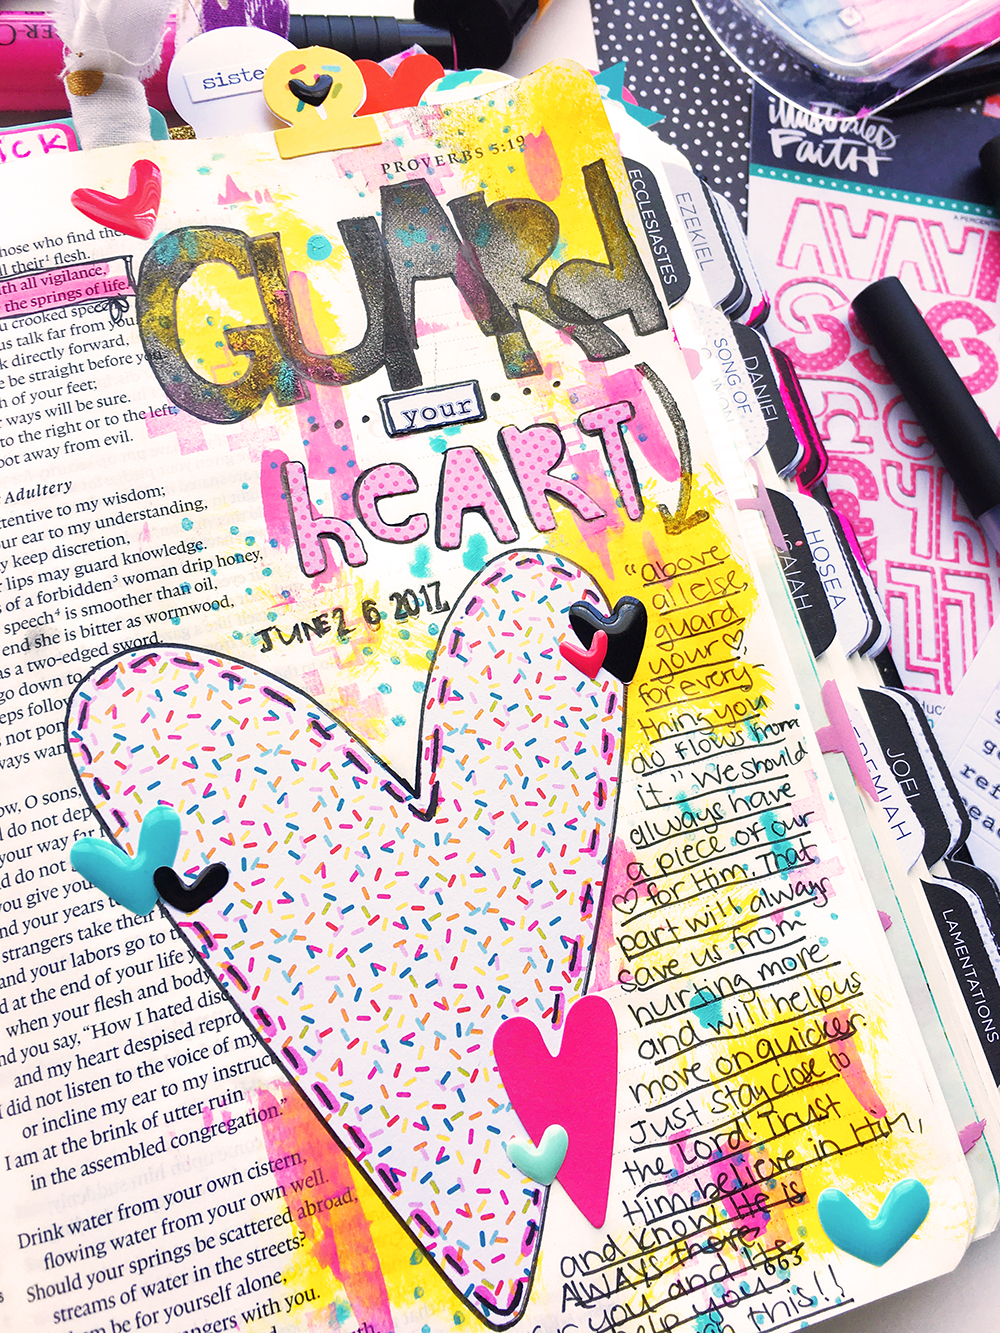 sister
ICK
PROVERBS 5:19
GUARd
your
heART
JUNE 2 6 2017
"above
all else,
guard
your ♡,
for every
thing you
do flows from
it." We should
always have
a piece of our
♡ for Him. That
part will always
save us from
hurting more
and will help us
move on quicker.
Just stay close to
the Lord! Trust
Him, believe in Him,
and know He is
ALWAYS there
for you and
help you
this!!
those who find
all their¹ flesh.
with all vigilance,
the springs of life.
crooked
talk far from you.
directly forward,
be straight before you.
of your feet;
ways will be sure.
to the right or to the left;
foot away from evil.
Adultery
attentive to my wisdom;
your ear to my understanding,
keep discretion,
lips may guard knowledge.
of a forbidden³ woman drip honey,
speech⁴ is smoother than oil,
end she is bitter as wormwood,
as a two-edged sword.
go down to
steps follow
not
ways
now, O sons,
do not
your way far
do not
you give your
and your years to
strangers take their
and your labors go to
at the end of your life
when your flesh and body
and you say, "How I hated
and my heart despised
I did not listen to the voice of my
or incline my ear to my
I am at the brink of utter ruin
in the assembled congregation."
Drink water from your own cistern,
flowing water from your own well.
Should your springs be scattered abroad,
streams of water in the streets?
them be for yourself alone,
strangers with you.
ECCLESIASTES
EZEKIEL
SONG OF
DANIEL
HOSEA
ISAIAH
JOEL
JEREMIAH
LAMENTATIONS
illustrated
FAITH